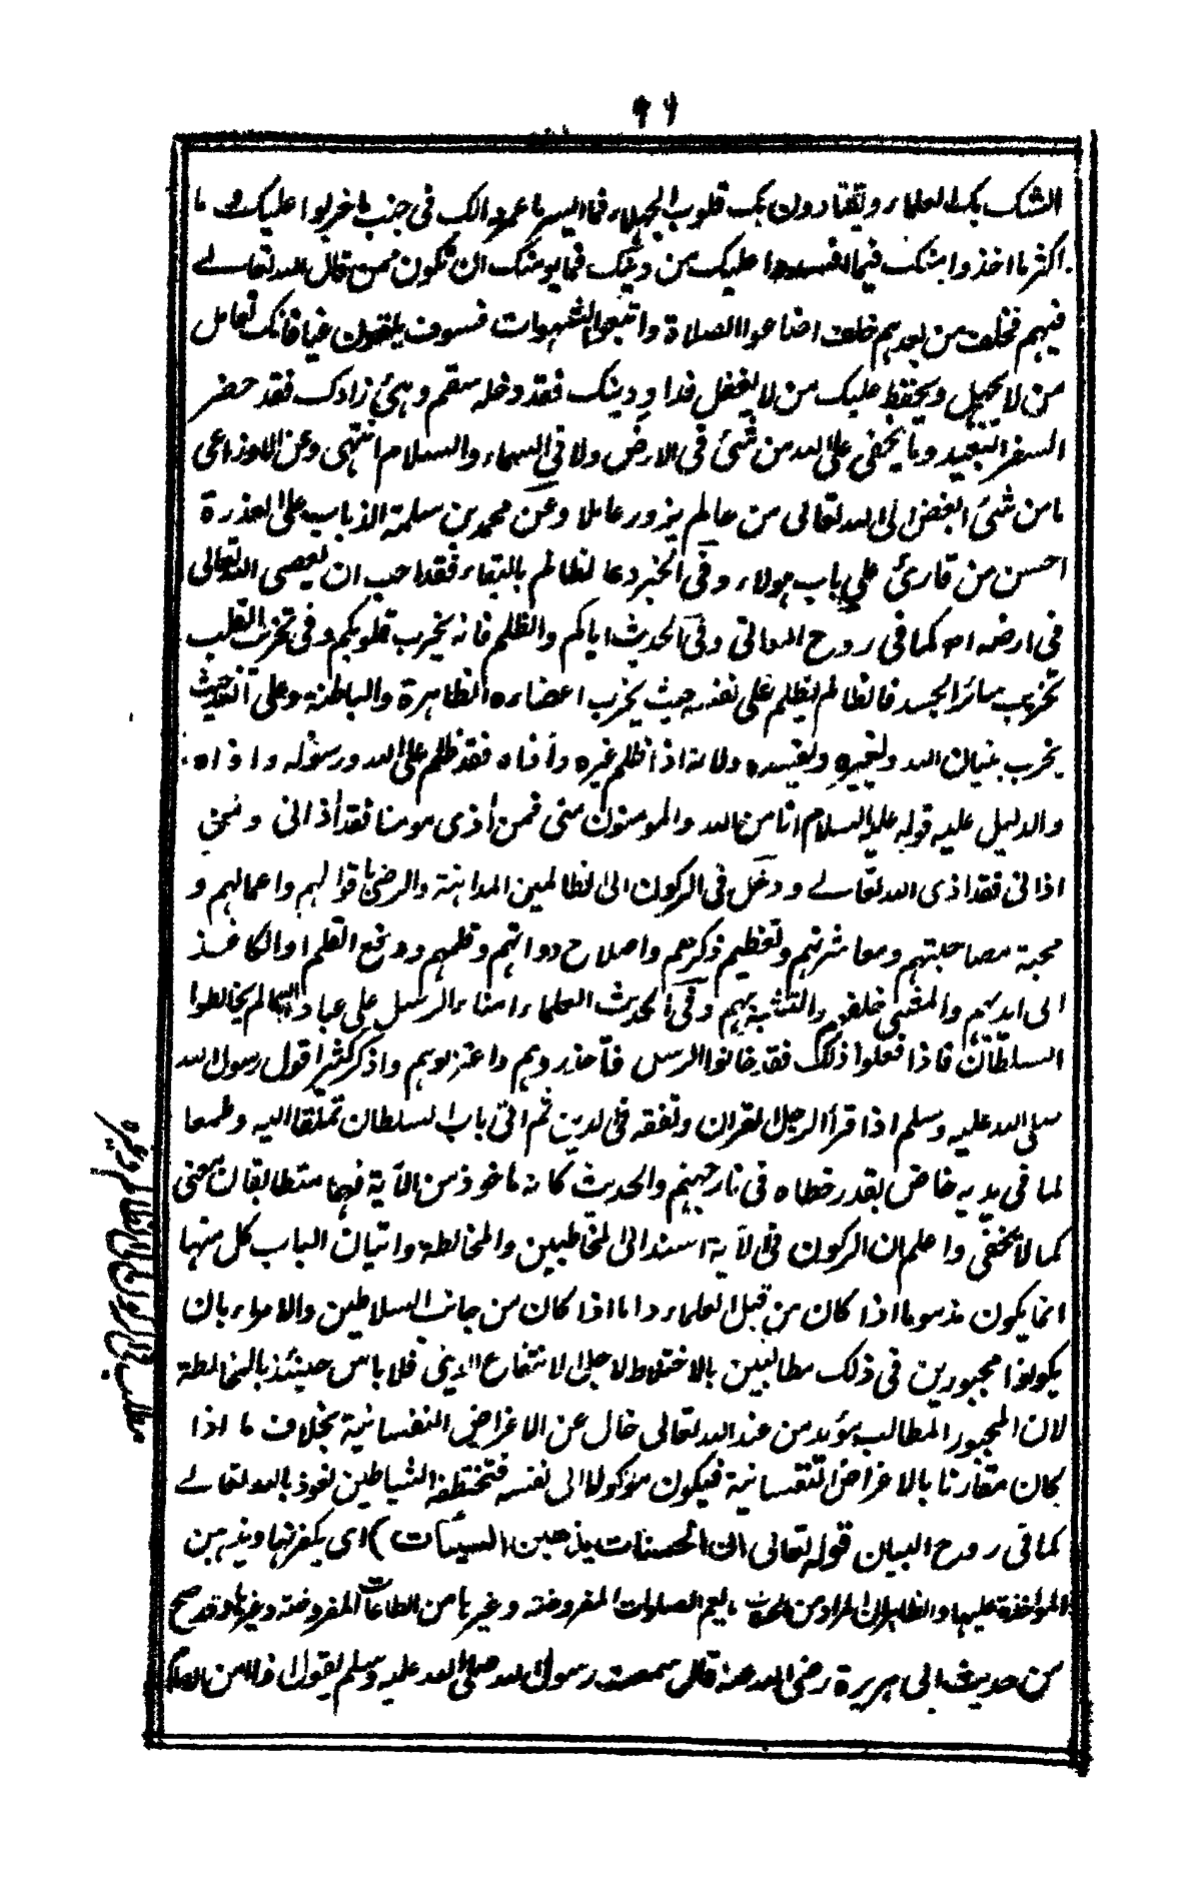 ٩٦
الشك بك العلماء ويقتادون بك قلوب الجهلاء فما ايسر ما عمروا لك في جنب ما خربوا عليك وما
اكثر ما اخذوا منك فيما افسدوا عليك من دينك فما يومنك ان تكون ممن قال الله تعالى
فيهم فخلف من بعدهم خلف اضاعوا الصلاة واتبعوا الشهوات فسوف يلقون غيا فانك تعامل
من لا يجهل ويحفظ عليك من لا يغفل فداو دينك فقد دخله سقم وهيئ زادك فقد حضر
السفر البعيد وما يخفى على الله من شئ في الارض ولا في السماء والسلام انتهى وعن الاوزاعى
ما من شئ ابغض الى الله تعالى من عالم يزور عاملا وعن محمد بن سلمة الذباب على العذرة
احسن من قارئ على باب هولاء وفى الخبر دعا لظالم بالبقاء فقد احب ان يعصى الله تعالى
في ارضه اه كما في روح المعانى وفى الحديث اياكم والظلم فانه يخرب قلوبكم وفى تخريب القلب
تخريب سائر الجسد فالظالم يظلم على نفسه حيث يخرب اعضاءه الظاهرة والباطنة وعلى الله حيث
يخرب بنيان الله ويغيره ويفسده ولانه اذا ظلم غيره وأذاه فقد ظلم على الله ورسوله واذاه
والدليل عليه قوله عليه السلام انا من الله والمومنون منى فمن أذى مومنا فقد أذانى ومن
اذانى فقد اذى الله تعالى ودخل في الركون الى الظالمين المداهنة والرضى باقوالهم واعمالهم و
محبة مصاحبتهم ومعاشرتهم وتعظيم ذكرهم واصلاح دواتهم وقلمهم ودفع القلم او الكاغذ
الى ايديهم والمشى خلفهم والتشبه بهم وفى الحديث العلماء امناء الرسل على عباد الله ما لم يخالطوا
السلطان فاذا فعلوا ذلك فقد خانوا الرسل فاحذروهم واعتزلوهم واذكر كثيرا قول رسول الله
صلى الله عليه وسلم اذا قرأ الرجل القران وتفقه في الدين ثم اتى باب السلطان تملقا اليه وطمعا
لما في يديه خاض بقدر خطاه في نار جهنم والحديث كانه ماخوذ من الآية فهما متطابقان معنى
كما لا يخفى واعلم ان الركون في الاية اسند الى المخاطبين والمخالطة واتيان الباب كل منها
انما يكون مذموما اذا كان من قبل العلماء واما اذا كان من جانب السلاطين والامراء بان
يكونوا مجبورين في ذلك مطالبين بالاختلاط لاجل الانتفاع الدينى فلا باس حينئذ بالمخالطة
لان المجبور المطالب مؤيد من عند الله تعالى خال عن الاغراض النفسانية بخلاف ما اذا
كان مقارنا بالاغراض النفسانية فيكون موكولا الى نفسه فتختطفه الشياطين نعوذ بالله تعالى
كما في روح البيان قوله تعالى ان الحسنات يذهبن السيئات ) اى يكفرنها ويذهبن
المواخذة عليها والظاهر ان المراد من الحسنات ما يعم الصلوات المفروضة وغيرها من الطاعات المفروضة وغيرها وقد صح
من حديث ابى هريرة رضى الله عنه قال سمعت رسول الله صلى الله عليه وسلم يقول
مطلب في الركون الى الظالم وغيره